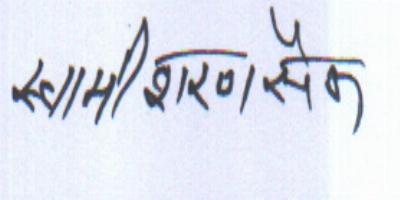 स्वामी शरण स्पैक